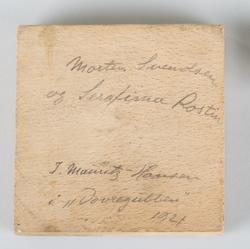 Morten Svendsen
og Serafima Rostin
T. Mauritz Hansen
i „Dovregubben"
1921